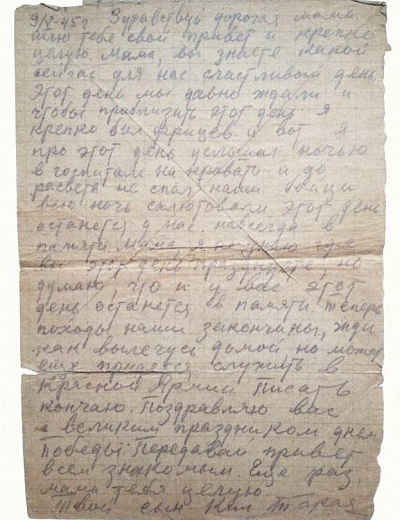 9/V-45г Здравствуй дорогая мама
шлю тебе свой привет и крепко
целую Мама, вы знаете какой
сейчас для нас счастливый день,
этот день мы давно ждали и
чтобы приблизить этот день я
крепко бил фрицев. и вот я
про этот день услышал ночью
в госпитале на кровати и до
рассвета не спал наши бойцы
всю ночь салютовали, этот день
останется у нас навсегда в
памяти Мама я не знаю где
вы этот день празднуете, но
думаю, что и у вас этот
день останется в памяти. теперь
походы наши закончины, жди
как вылечусь домой но может
еще придется служить в
Красной Армии Писать
кончаю. Поздравляю вас
с великим праздником днем
Победы. Передавай привет
всем знакомым. Еще раз,
мама тебя целую
Твой сын Ким